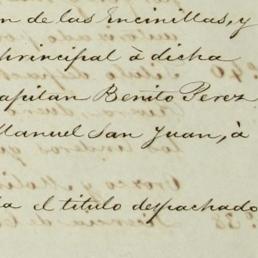 n de las Encinillas, y
principal á dicha
apitan Benito Perez
Manuel San Juan, á
a el titulo despachado